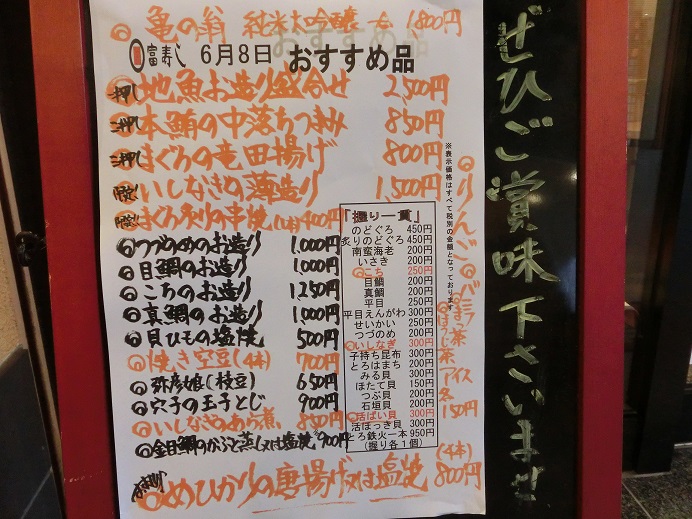 ◎亀の翁 純米大吟醸 一合 1800円
富寿し 6月8日 おすすめ品
一押し 地魚お造り盛合せ 2,500円
二押し 本鮪の中落ちつまみ 850円
三押し まぐろの竜田揚げ 800円
いしなぎの薄造り 1,500円
まぐろ炙りの串焼(1本)400円
◎つづのめのお造り 1,000円
◎目鯛のお造り 1,000円
◎こちのお造り 1,250円
◎真鯛のお造り 1,000円
◎貝ひもの塩焼 500円
◎焼き空豆(4本) 700円
◎弥彦娘(枝豆) 650円
◎穴子の玉子とじ 900円
◎いしなぎのあら煮 850円
◎金目鯛のかぶと蒸し又は塩焼 900円
◎めひかりの唐揚げ又は塩焼 (4本) 800円
「握り一貫」
のどぐろ 450円
炙りのどぐろ 450円
南蛮海老 200円
いさき 200円
◎こち 250円
目鯛 200円
真鯛 200円
平目 200円
平目えんがわ 300円
せいかい 200円
つづのめ 200円
◎いしなぎ 300円
子持ち昆布 300円
とろはまち 200円
みる貝 300円
ほたて貝 150円
つぶ貝 200円
石垣貝 200円
◎活ばい貝 300円
活ほっき貝 300円
とろ鉄火一本 950円
(握り各1個)
※表示価格はすべて税別の金額となっております
◎りんご◎バニラ
◎まっ茶
◎ほうじ茶
アイス各150円
ぜひご賞味下さいませ